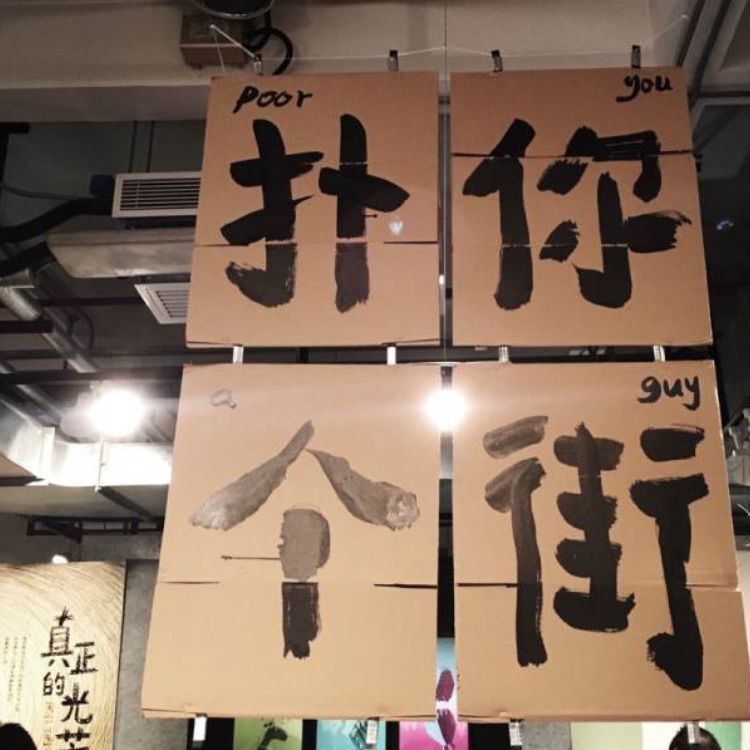 poor
you
扑你
a
guy
个街
真正
的光芒